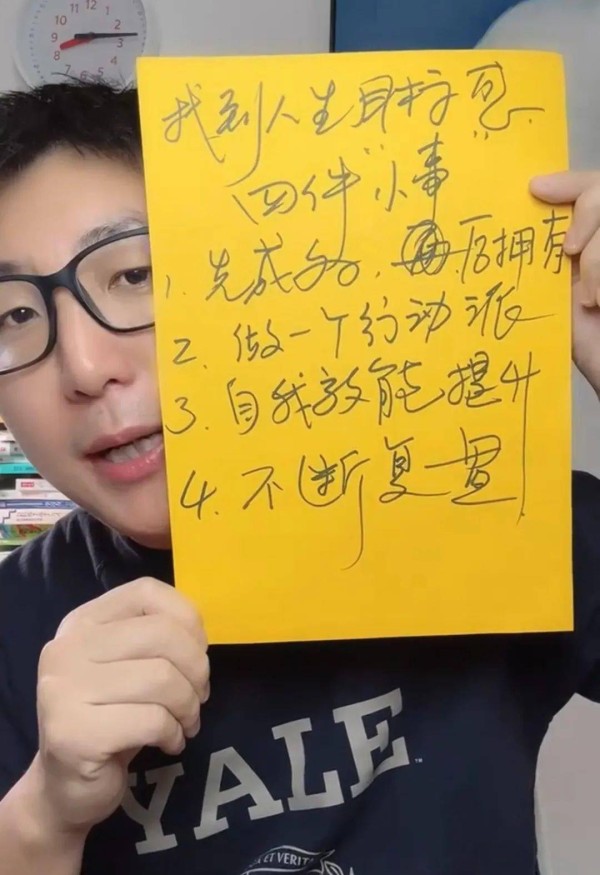 12
11 1
10 2
9 3
8 4
7 5
6
找到人生目标感
四件"小事"
1. 先成为，后拥有
2. 做一个行动派
3. 自我效能提升
4. 不断复盘
YALE
ET VERIT